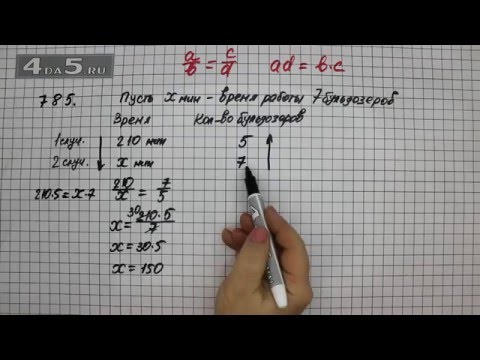 4DA5.RU
a/b = c/d   ad = b·c
785. Пусть x мин – время работы 7 бульдозеров
Время   Кол-во бульдозеров
1 случ. ↓ 210 мин   5 ↑
2 случ. x мин   7
210·5=x·7   210/x = 7/5
x = 30 210·5/7
x = 30·5
x = 150